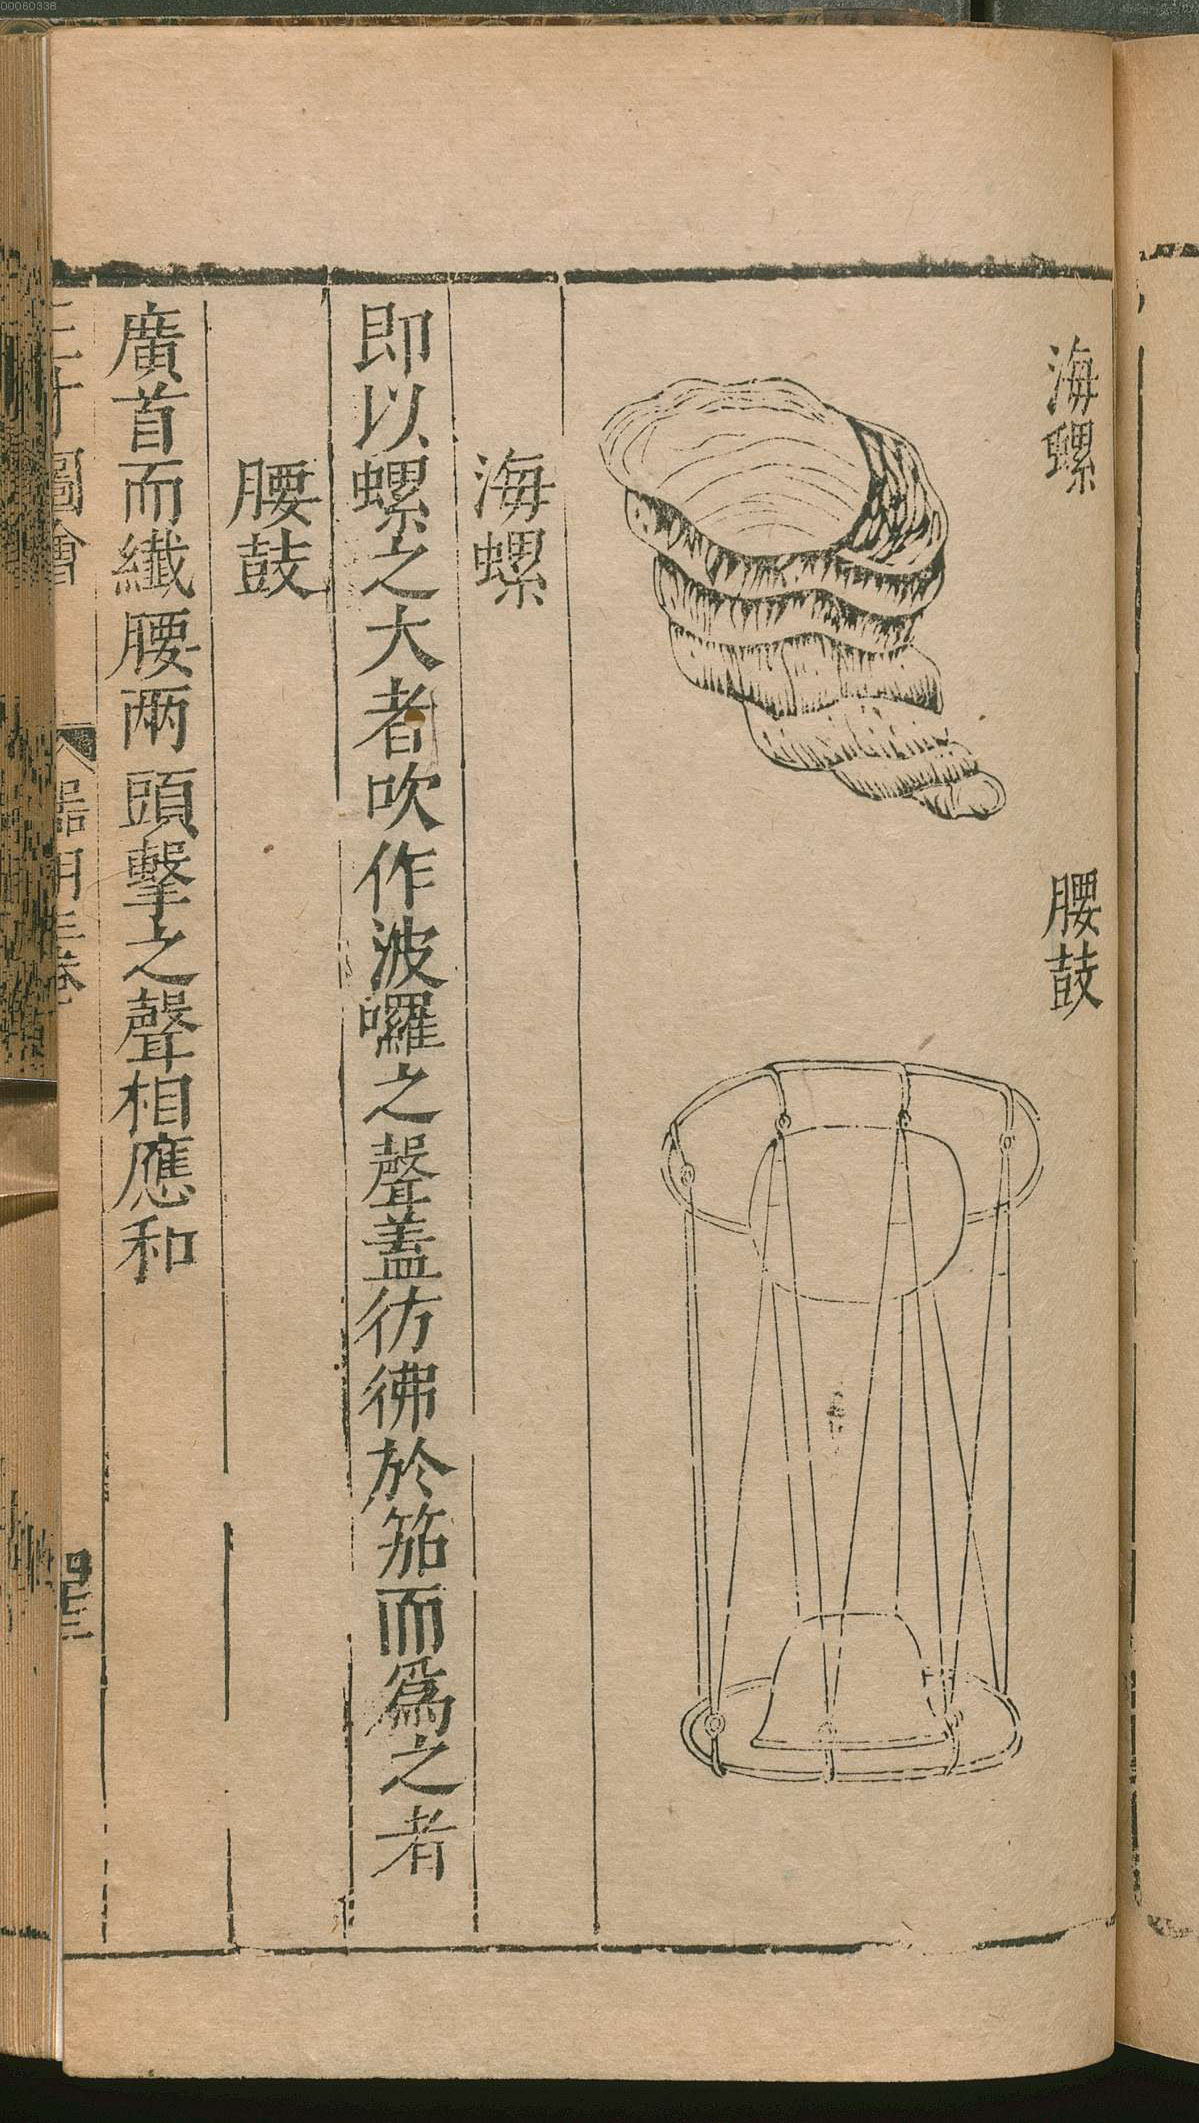 海螺
腰鼓
海螺
即以螺之大者吹作波囉之聲蓋彷彿於笳而爲之者
腰鼓
廣首而纖腰兩頭擊之聲相應和
三才圖會
器用三卷
00060338